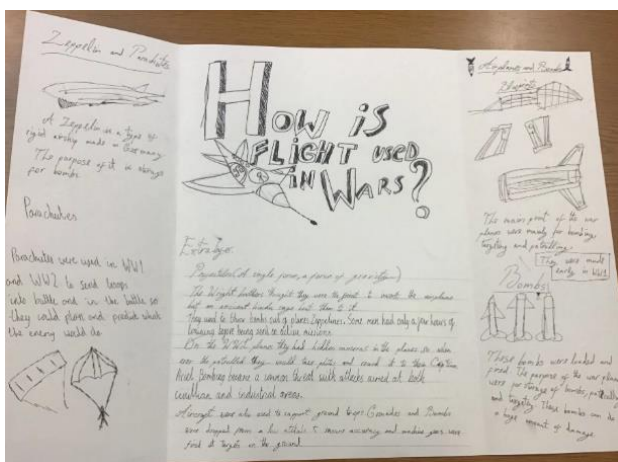 Zeppelin and Parachutes
A Zeppelin is a type of
rigid airship made in Germany.
The purpose of it is storage
for bombs.
Parachutes
Parachutes were used in WW1
and WW2 to send troops
into battle and in the battle so
they could plan and predict what
the enemy would do.
HOW IS
FLIGHT USED
IN WARS?
Extra Info:
The Wright brothers thought they were the first to invent the airplane
but an ancient hindu sage beat them to it.
They used to throw bombs out of planes Zeppelines. Some men had only a few hours of
training before being sent on active missions.
On the WW1 planes they had hidden cameras in the planes so when
ever the patrolled they would take pictures and send it to their Captain
Arial Bombing became a common threat with attacks aimed at both
civilian and industrial areas.
Aircraft were also used to support ground troops Grenades and Bombs
were dropped from a low altitude to ensure accuracy and machine guns were
fired at targets in the ground.
Airplanes and Bombs
Blueprints
The main point of the war
planes were mainly for bombing,
targeting and patrolling.
They were made
early in WW1
Bombs
These bombs were loaded and
fired. The purpose of the war planes
were for storage of bombs,
and targeting. These bombs can do
a huge amount of damage.